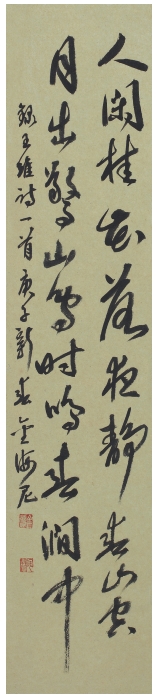 人闲桂花落夜静春山空
月出惊山鸟时鸣春涧中
王维诗一首庚子新春金海尼